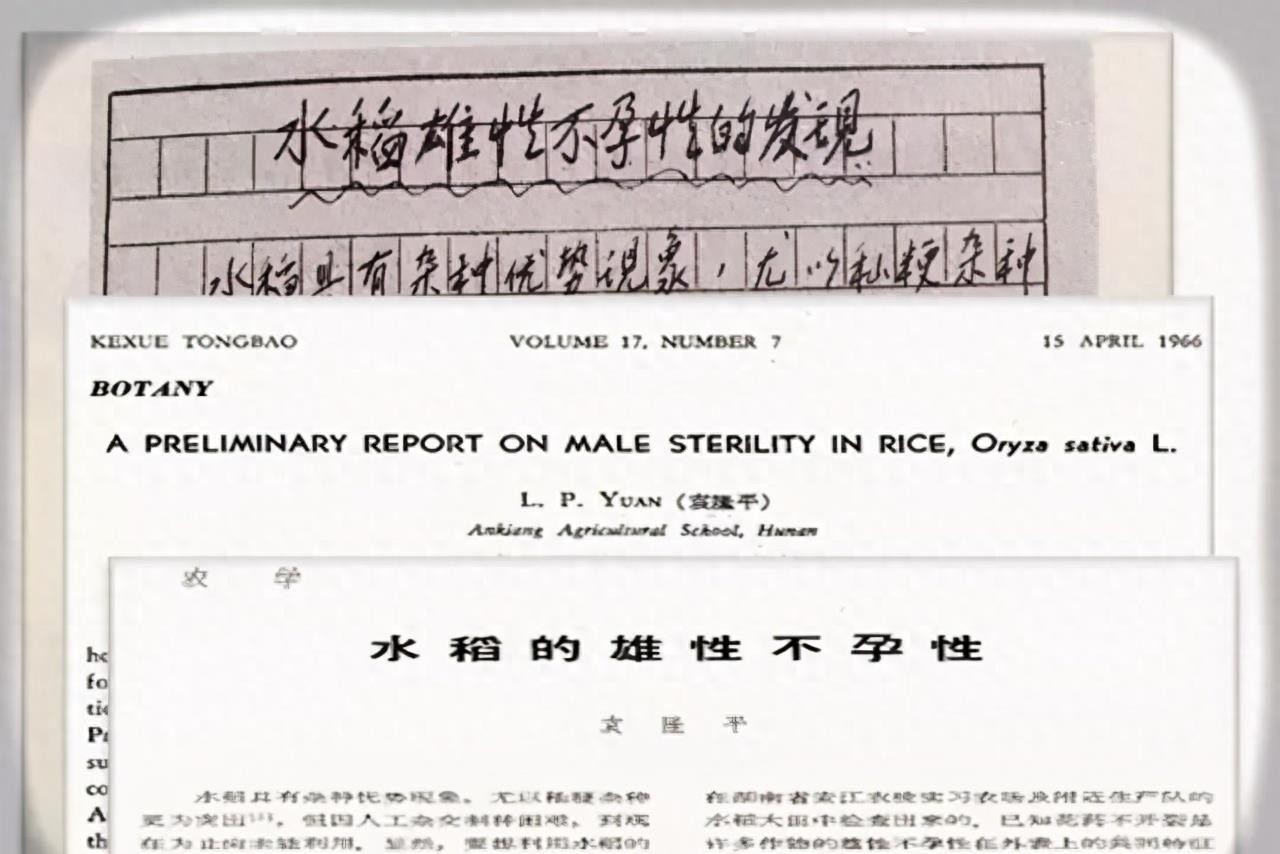 水稻雄性不孕性的发现
水稻具有杂种优势现象，尤以籼粳杂种
KEXUE TONGBAO VOLUME 17, NUMBER 7 15 APRIL 1966
BOTANY
A PRELIMINARY REPORT ON MALE STERILITY IN RICE, Oryza sativa L.
L. P. YUAN (袁隆平)
Ankiang Agricultural School, Hunan
fo
su
co
A
th
农 学
水稻的雄性不孕性
袁隆平
水稻具有杂种优势现象，尤以籼粳杂种
更为突出[1]，但因人工杂交制种困难，到现
在为止尚未能利用。显然，要想利用水稻的
在湖南省安江农校实习农场及附近生产队的
水稻大田中检查出来的。已知花药不开裂是
许多作物的雄性不孕性在外表上的共同特征